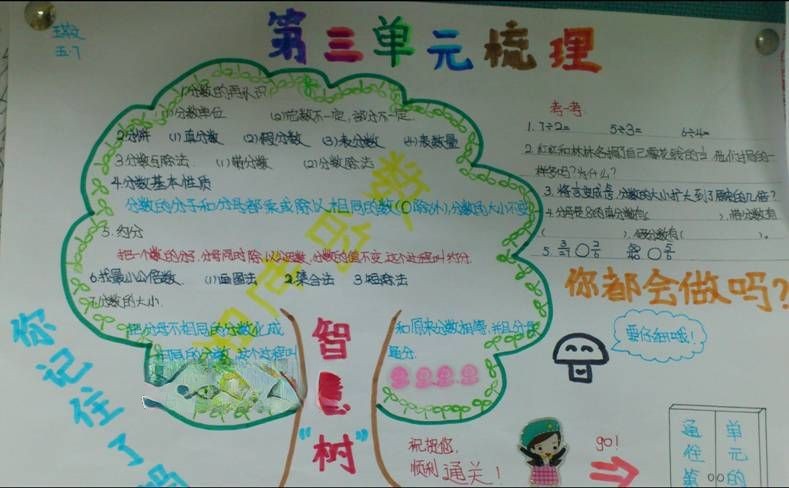 五·7
第三单元梳理
1.分数的再认识
(1)分数单位 (2)总数不一定,部分不一定.
2.分饼 (1)真分数 (2)假分数 (3)表分数 (4)表数量
3.分数与除法 (1)带分数 (2)分数除法
4.分数基本性质
分数的分子和分母都乘或除以相同的数(0除外),分数的大小不变
5.约分
把一个数的分子、分母同时除以公因数,分数的值不变,这个过程叫约分.
6.找最小公倍数. (1)画圈法 2.集合法 3.短除法
7.分数的大小.
把分母不相同的分数化成 和原来分数相等,并且分母
相同的分数,这个过程叫 通分.
智慧
"树"
考一考
1. 7÷2= 5÷3= 6÷4=
2.红红和林林各捐了自己零花钱的 他们付的一
样多吗?为什么?
3. 将 变成 分数的大小扩大到了原来的几倍?
4. 分母是8的真分数有( ), 假分数有
( ), 带分数有( ).
5.
你都会做吗?
要仔细哦!
你记住了吗
祝祝您,
顺利通关!
go!
单元的
通往第